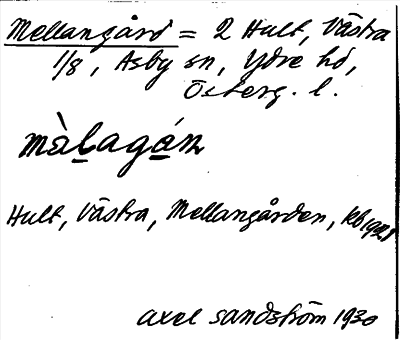 Mellangård = 2 Hult, Västra
1/8, Asby sn, Ydre hd,
Österg. l.
màlagán
Hult, Västra, Mellangården, kb 1921
Axel Sandström 1930